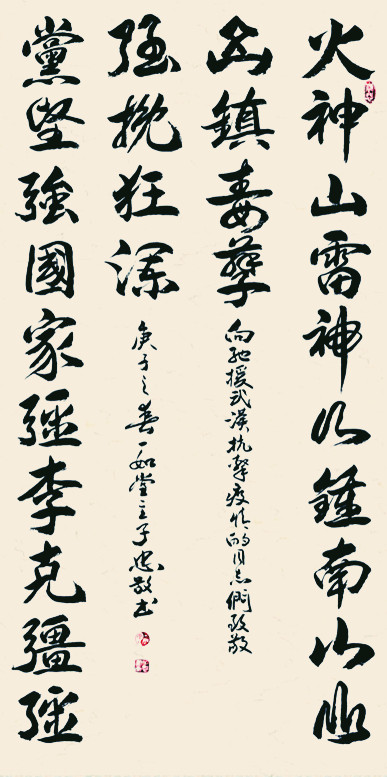 火神山雷神山鍾南山山
山鎮毒孽
向馳援武漢抗擊疫情的同志們致敬
黨堅強國家强李克彊强
强挽狂瀾
庚子之春一如堂主子忠敬書